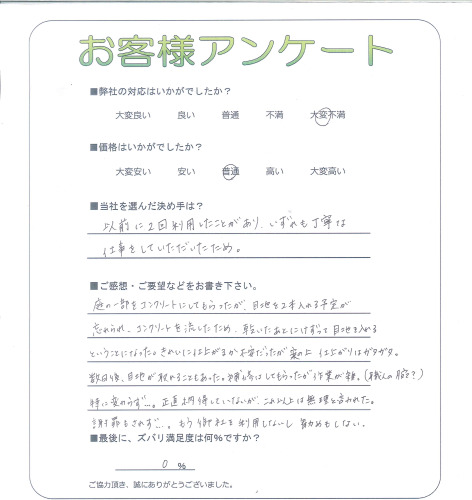 お客様アンケート
■弊社の対応はいかがでしたか？
大変良い 良い 普通 不満 大変不満
■価格はいかがでしたか？
大変安い 安い 普通 高い 大変高い
■当社を選んだ決め手は？
以前に2回利用したことがあり、いずれも丁寧な
仕事をしていただいたため。
■ご感想・ご要望などをお書き下さい。
庭の一部をコンクリートにしてもらったが、目地を2本入れる予定が
忘れられ、コンクリートを流したため、乾いたあとにけずって目地を入れる
ということになった。きれいに仕上がるか不安だったが案の上 仕上がりはガタガタ。
数日後、目地が取れることもあった。補修はしてもらったが作業が雑。(職人の腕？)
特に変わらず…。正直納得していないが、これ以上は無理と言われた。
謝罪もされず…。もう御社を利用しないし 勧めもしない。
■最後に、ズバリ満足度は何%ですか？
0 %
ご協力頂き、誠にありがとうございました。